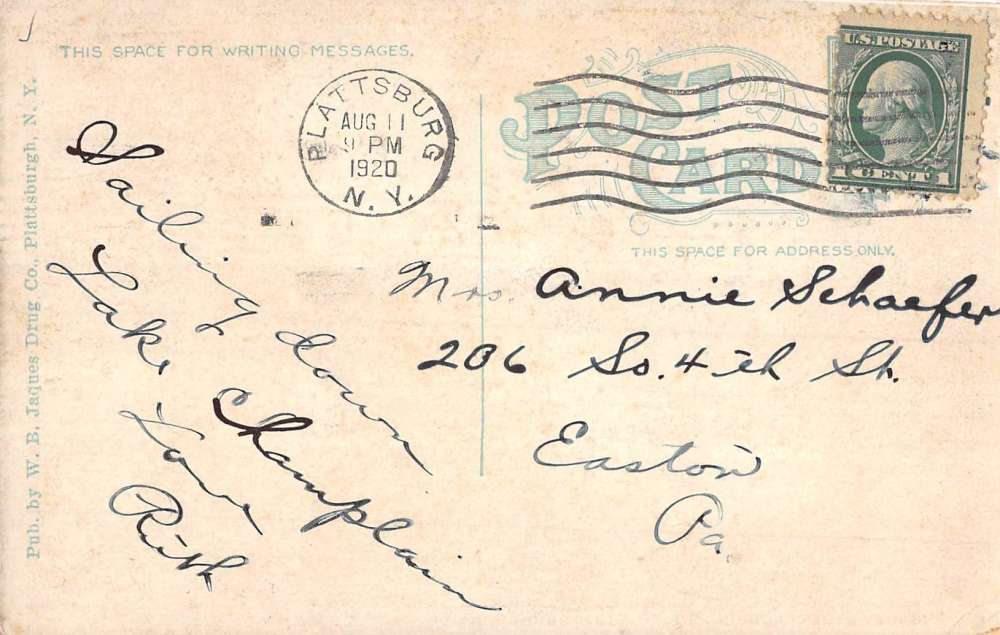 THIS SPACE FOR WRITING MESSAGES.
PLATTSBURG
AUG 11
9 PM
1920
N. Y.
POST CARD
U.S. POSTAGE
1 CENT 1
THIS SPACE FOR ADDRESS ONLY.
Pub. by W. B. Jaques Drug Co., Plattsburgh, N. Y.
Sailing down
Lake Champlain
Love
Ruth
Mrs. Annie Schaefer
206 So. 4th St.
Easton
Pa.